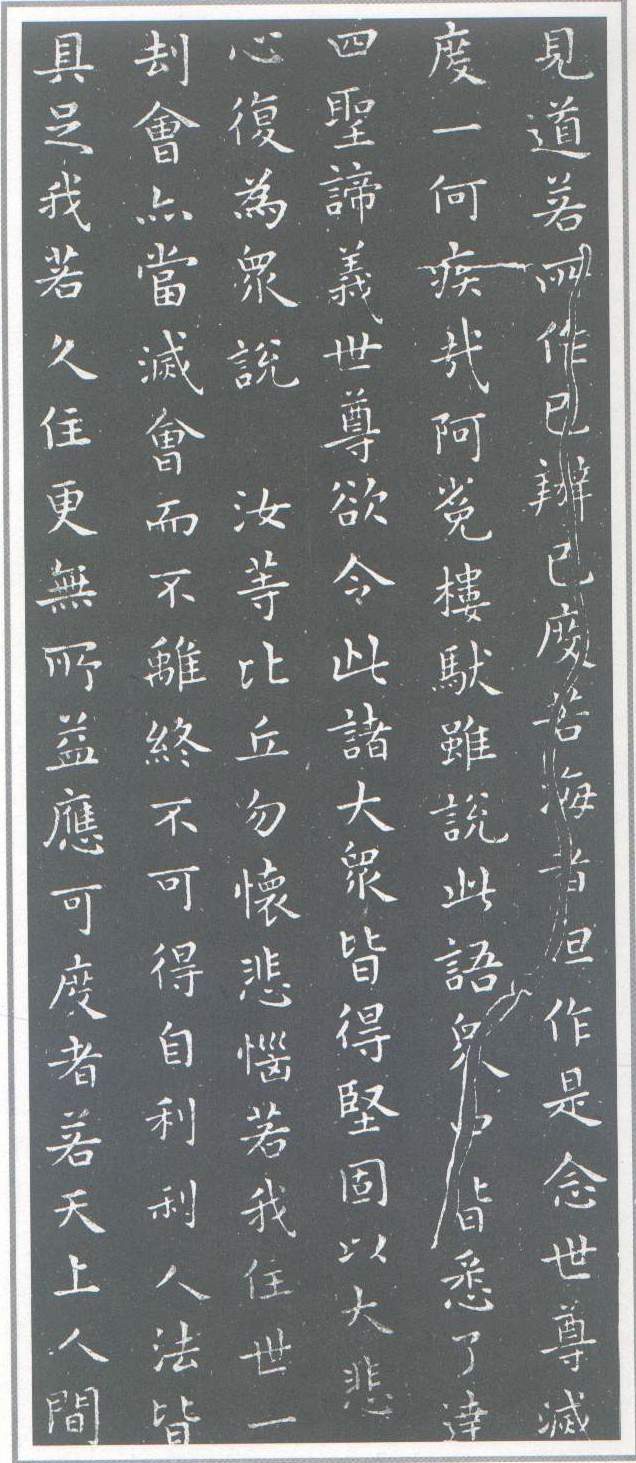 見道若所作已辦已度苦海者但作是念世尊滅
度一何疾哉阿㝹樓馱雖說此語眾中皆悉了達
四聖諦義世尊欲令此諸大眾皆得堅固以大悲
心復為眾說 汝等比丘勿懷悲惱若我住世一
劫會亦當滅會而不離終不可得自利利人法皆
具足我若久住更無所益應可度者若天上人間